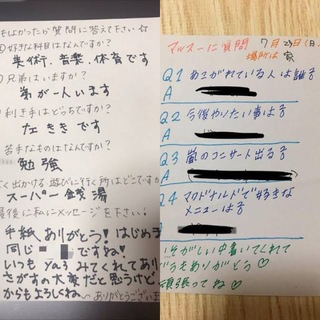 もよしよかったが質問に答えて下さい☆
好きな科目はなんですか?
美術、音楽、体育です
兄弟はいますか?
弟が一人います
利き手はどっちですか?
左ききです
苦手なものはなんですか?
勉強
く出かける、遊びに行く所はどこですか
スーパー銭湯
最後に私にメッセージを下さい!
手紙ありがとう!はじめま
同じ ですね!
いつもYa3みてくれてあり
さがすの大変だと思うけど
からもよろしくね
ありがとうございま
マッスーに質問 7月23日(日
場所は 家
Q1 あこがれている人は誰?
A
Q2 今後やりたい事は?
A
Q3 嵐のコンサート出る?
A
Q4 マクドナルドで好きな
メニューは?
A
いそがしい中書いてくれて
どうもありがとう♡
頑張ってね♡